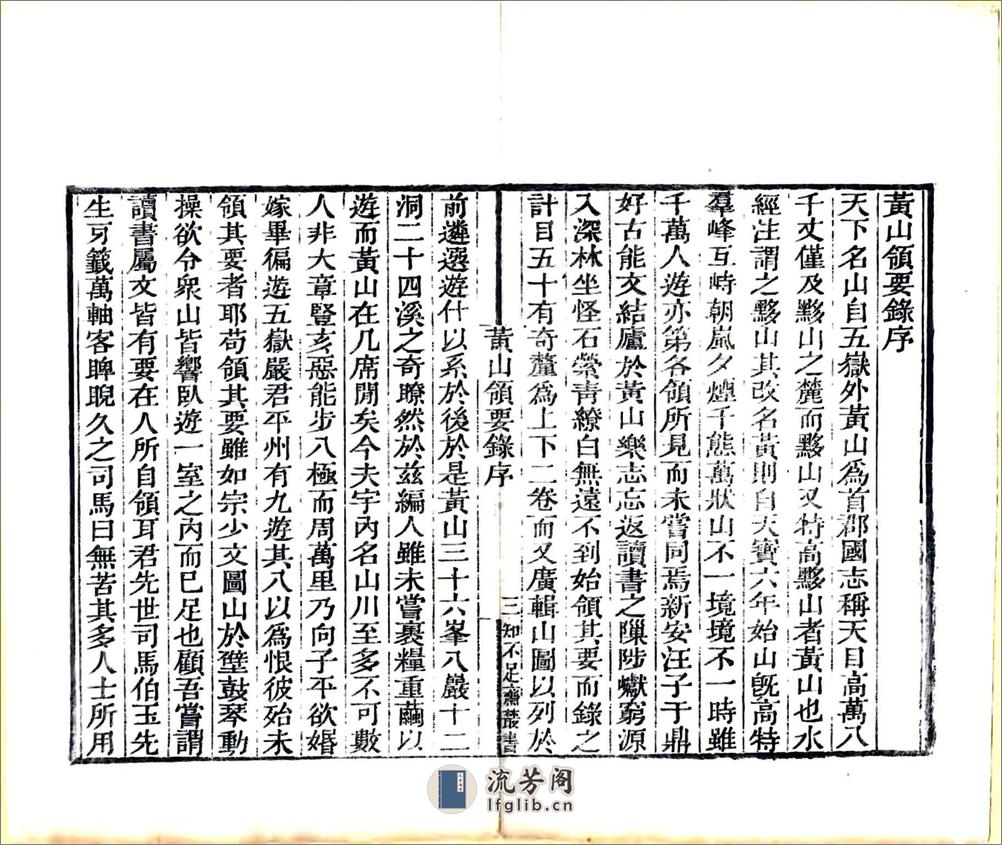 黃山領要錄序
天下名山自五嶽外黃山爲首郡國志稱天目高萬八
千丈僅及黟山之麓而黟山又特高黟山者黃山也水
經注謂之黟山其改名黃則自天寶六年始山旣高特
羣峰互峙朝嵐夕煙千態萬狀山不一境境不一時雖
千萬人遊亦第各領所見而未嘗同焉新安汪子于鼎
好古能文結廬於黃山樂志忘返讀書之隟陟巘窮源
入深林坐怪石縈青繚白無遠不到始領其要而錄之
計目五十有奇釐爲上下二卷而又廣輯山圖以列於
黃山領要錄序
三
知不足齋叢書
前遴選遊什以系於後於是黃山三十六峯八巖十二
洞二十四溪之奇瞭然於兹編人雖未嘗裹糧重繭以
遊而黃山在几席閒矣今夫宇內名山川至多不可數
人非大章豎亥惡能步八極而周萬里乃向子平欲婚
嫁畢徧遊五嶽嚴君平州有九遊其八以爲恨彼殆未
領其要者耶苟領其要雖如宗少文圖山於壁鼓琴動
操欲令衆山皆響臥遊一室之內而已足也顧吾嘗謂
讀書屬文皆有要在人所自領耳君先世司馬伯玉先
生可籤萬軸客睥睨久之司馬曰無苦其多人士所用
流芳阁
lfglib.cn